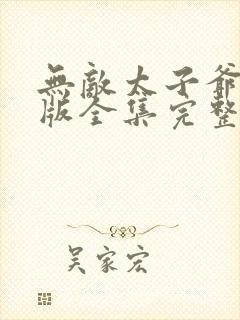 無敵太子爺
版全集完整
吳家宏